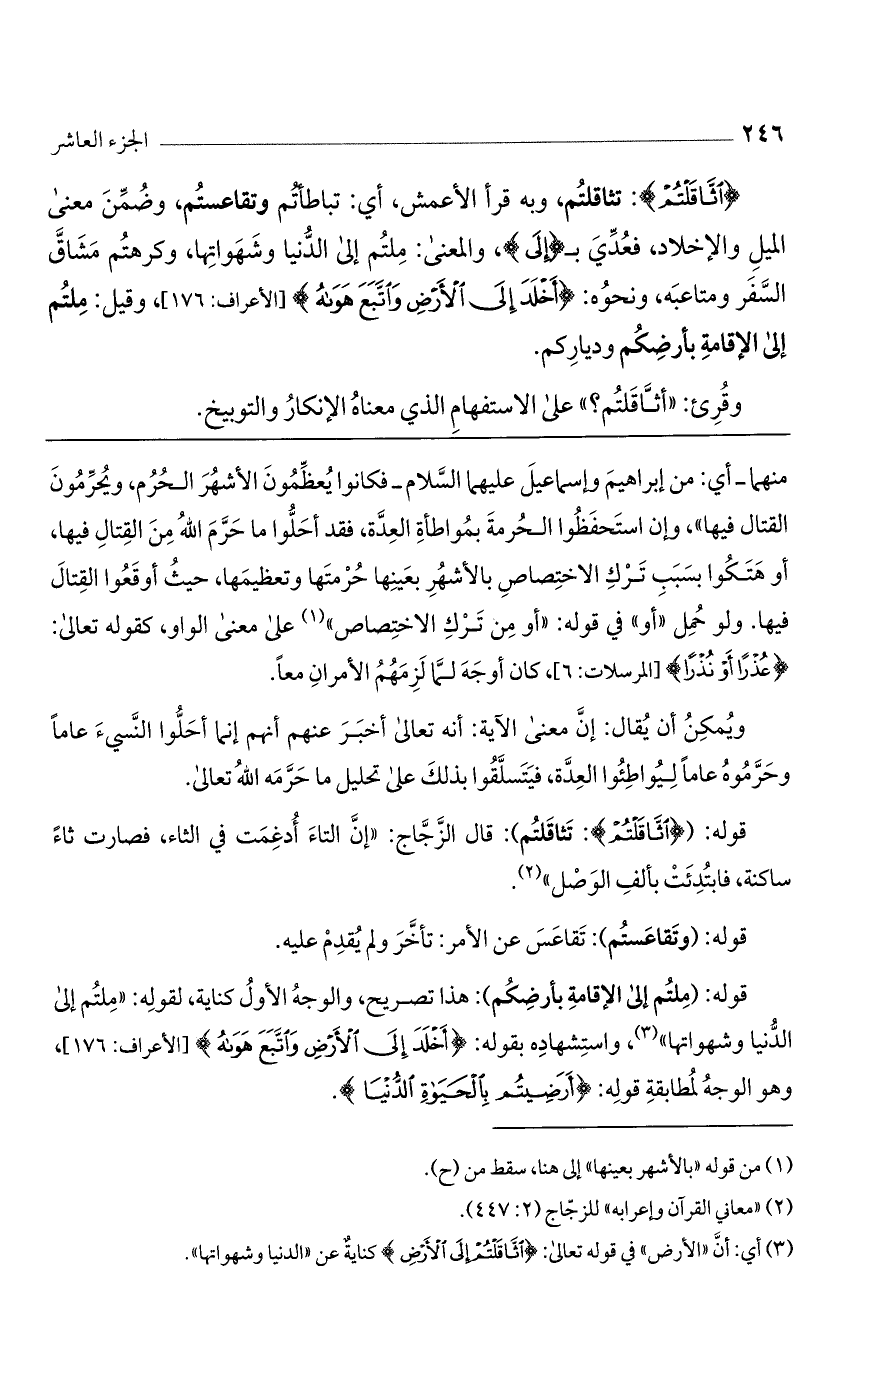 ٢٤٦ الجزء العاشر
﴿ٱثَّاقَلْتُمْ﴾: تثاقلتُم، وبه قرأ الأعمش، أي: تباطأتُم وتقاعستُم، وضُمِّنَ معنىٰ
الميلِ والإخلاد، فعُدِّيَ بـ﴿إِلَى﴾، والمعنىٰ: مِلتُم إلىٰ الدُّنيا وشَهَواتِها، وكرهتُم مَشَاقَّ
السَّفَر ومتاعبَه، ونحوُه: ﴿أَخْلَدَ إِلَى ٱلْأَرْضِ وَٱتَّبَعَ هَوَىٰهُ﴾ [الأعراف: ١٧٦]، وقيل: مِلتُم
إلىٰ الإقامةِ بأرضِكُم وديارِكم.
وقُرِئ: «أثَّاقَلتُم؟» علىٰ الاستفهامِ الذي معناهُ الإنكارُ والتوبيخ.
منهما ـ أي: من إبراهيمَ وإسماعيلَ عليهما السَّلام ـ فكانوا يُعظِّمُونَ الأشهُرَ الـحُرُم، ويُحرِّمُونَ
القتال فيها»، وإن استَحفَظُوا الـحُرمةَ بمُواطأةِ العِدَّة، فقد أحَلُّوا ما حَرَّمَ اللهُ مِنَ القِتالِ فيها،
أو هَتَكُوا بسَبَبِ تَرْكِ الاختِصاصِ بالأشهُرِ بعَينِها حُرْمتَها وتعظيمَها، حيثُ أوقَعُوا القِتالَ
فيها. ولو حُمِل «أو» في قوله: «أو مِن تَرْكِ الاختِصاص»(١) علىٰ معنىٰ الواو، كقوله تعالىٰ:
﴿عُذْرًا أَوْ نُذْرًا﴾ [المرسلات: ٦]، كان أوجَهَ لـمَّا لَزِمَهُمُ الأمرانِ معاً.
ويُمكِنُ أن يُقال: إنَّ معنىٰ الآية: أنه تعالىٰ أخبَـرَ عنهم أنهم إنما أحَلُّوا النَّسيءَ عاماً
وحَرَّمُوهُ عاماً لِـيُواطِئُوا العِدَّة، فيَتَسلَّقُوا بذلكَ علىٰ تحليل ما حَرَّمَه اللهُ تعالىٰ.
قوله: (﴿ٱثَّاقَلْتُمْ﴾: تَثاقَلتُم): قال الزَّجَّاج: «إنَّ التاءَ أُدغِمَت في الثاء، فصارت ثاءً
ساكنة، فابتُدِئَتْ بألفِ الوَصْل»(٢).
قوله: (وتَقاعَستُم): تَقاعَسَ عن الأمر: تأخَّرَ ولم يُقدِمْ عليه.
قوله: (مِلتُم إلىٰ الإقامةِ بأرضِكُم): هذا تصـريح، والوجهُ الأولُ كناية، لقولِه: «مِلتُم إلىٰ
الدُّنيا وشهواتها»(٣)، واستِشهادِه بقوله: ﴿أَخْلَدَ إِلَى ٱلْأَرْضِ وَٱتَّبَعَ هَوَىٰهُ﴾ [الأعراف: ١٧٦]،
وهو الوجهُ لمُطابقةِ قولِه: ﴿أَرَضِيتُم بِٱلْحَيَوٰةِ ٱلدُّنْيَا﴾.
(١) من قوله «بالأشهر بعينها» إلى هنا، سقط من (ح).
(٢) «معاني القرآن وإعرابه» للزجّاج (٢: ٤٤٧).
(٣) أي: أنَّ «الأرض» في قوله تعالىٰ: ﴿ٱثَّاقَلْتُمْ إِلَى ٱلْأَرْضِ﴾ كنايةٌ عن «الدنيا وشهواتها».